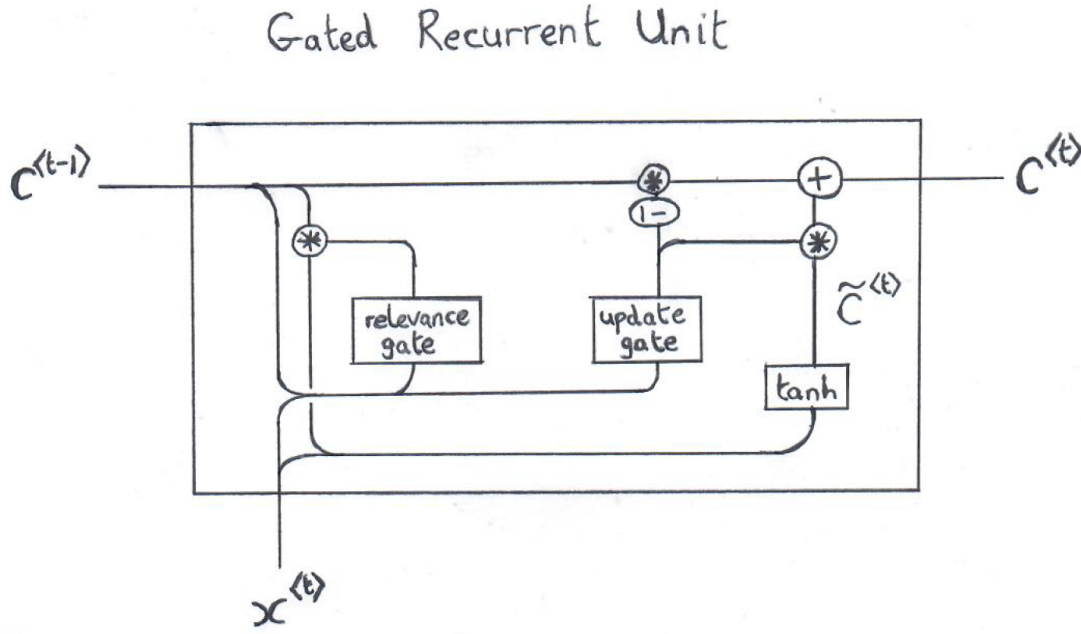 Gated Recurrent Unit
C<t-1>
C<t>
*
+
1-
*
*
C̃<t>
relevance
gate
update
gate
tanh
x<t>